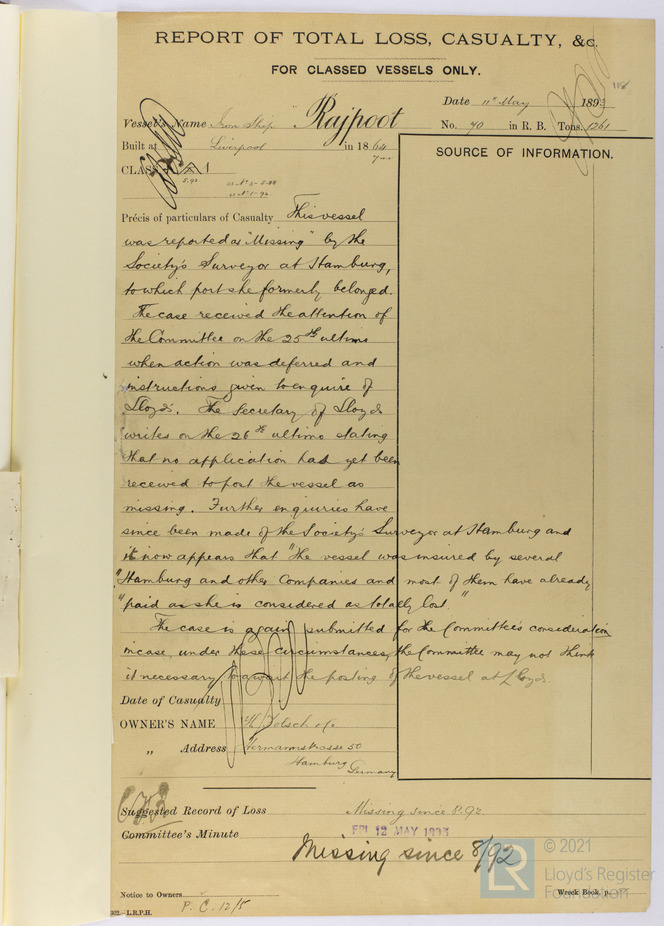 REPORT OF TOTAL LOSS, CASUALTY, &c.
FOR CLASSED VESSELS ONLY.
Date 11th May 1893
Vessel's Name Iron Ship "Rajpoot No. 40 in R. B. Tons. 1261
Built at Liverpool in 1864
CLASS A 1
5.92
SOURCE OF INFORMATION.
Précis of particulars of Casualty This vessel
was reported as "Missing" by the
Society's Surveyor at Hamburg,
to which port she formerly belonged.
The case received the attention of
the Committee on the 25th ultimo
when action was deferred and
instructions given to enquire of
Lloyd's. The Secretary of Lloyds
writes on the 26th ultimo stating
that no application had yet been
received to post the vessel as
missing. Further enquiries have
since been made of the Society's Surveyor at Hamburg and
it now appears that "the vessel was insured by several
"Hamburg and other Companies and most of them have already
"paid as she is considered as totally lost."
The case is again submitted for the Committee's consideration
in case, under these circumstances, the Committee may not think
it necessary to await the posting of the vessel at Lloyds.
Date of Casualty
OWNER'S NAME
„ Address Hermannstrasse 50
Hamburg
Germany
Suggested Record of Loss Missing since 8.92
Committee's Minute FRI 12 MAY 1893
Missing since 8/92
© 2021
LR Lloyd's Register
Foundation
Notice to Owners
P. C. 12/5
Wreck Book, p.
302.—L.R.P.H.